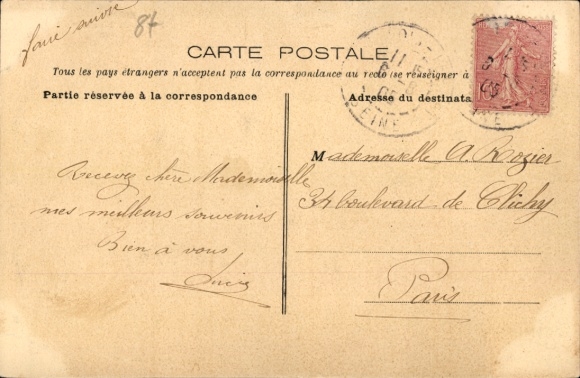 faire suivre
84
CARTE POSTALE
Tous les pays étrangers n'acceptent pas la correspondance au recto (se renseigner à
Partie réservée à la correspondance
Adresse du destinata
SEINE
Recevez chère Mademoiselle
mes meilleurs souvenirs
Bien à vous
Mademoiselle A. Rozier
34 boulevard de Clichy
Paris